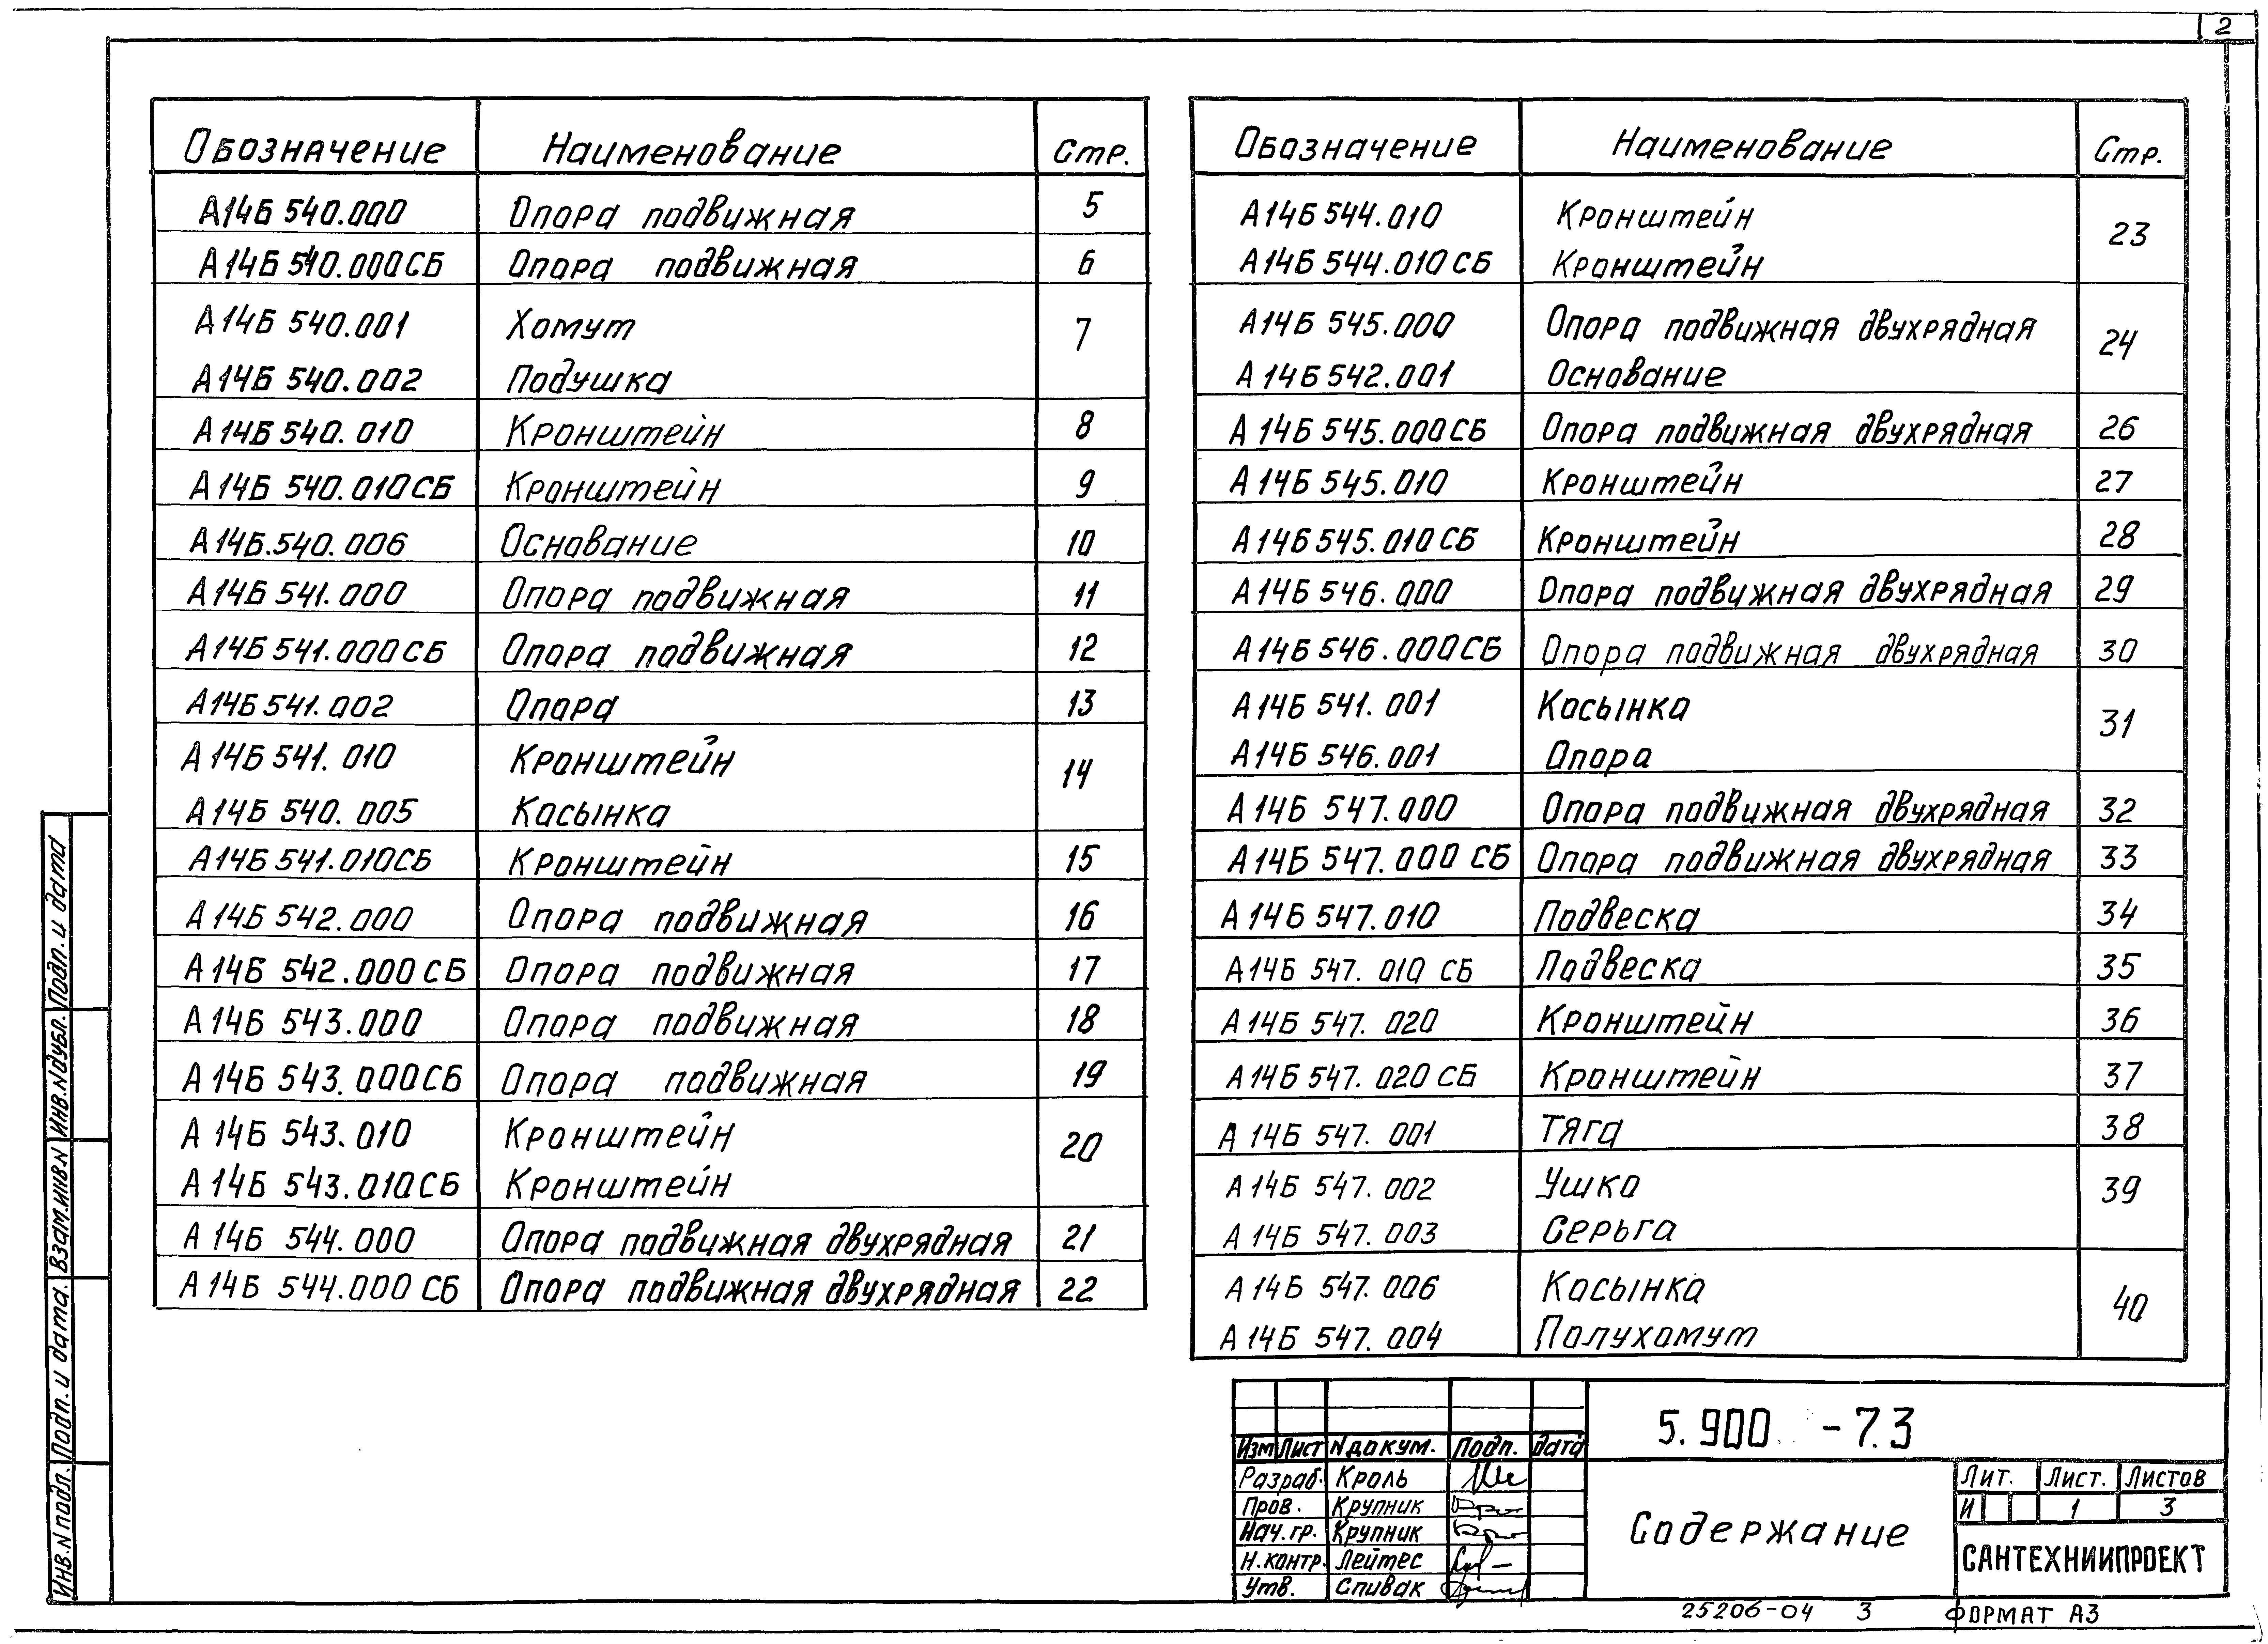 2
Обозначение Наименование Стр.
А14Б 540.000 Опора подвижная 5
А14Б 540.000СБ Опора подвижная 6
А14Б 540.001 Хомут 7
А14Б 540.002 Подушка
А14Б 540.010 Кронштейн 8
А14Б 540.010СБ Кронштейн 9
А14Б.540.006 Основание 10
А14Б 541.000 Опора подвижная 11
А14Б 541.000СБ Опора подвижная 12
А14Б 541.002 Опора 13
А14Б 541.010 Кронштейн 14
А14Б 540.005 Косынка
А14Б 541.010СБ Кронштейн 15
А14Б 542.000 Опора подвижная 16
А14Б 542.000СБ Опора подвижная 17
А14Б 543.000 Опора подвижная 18
А14Б 543.000СБ Опора подвижная 19
А14Б 543.010 Кронштейн 20
А14Б 543.010СБ Кронштейн
А14Б 544.000 Опора подвижная двухрядная 21
А14Б 544.000 СБ Опора подвижная двухрядная 22
Обозначение Наименование Стр.
А14Б 544.010 Кронштейн 23
А14Б 544.010 СБ Кронштейн
А14Б 545.000 Опора подвижная двухрядная 24
А14Б 542.001 Основание
А14Б 545.000СБ Опора подвижная двухрядная 26
А14Б 545.010 Кронштейн 27
А14Б 545.010 СБ Кронштейн 28
А14Б 546.000 Опора подвижная двухрядная 29
А14Б 546.000СБ Опора подвижная двухрядная 30
А14Б 541.001 Косынка 31
А14Б 546.001 Опора
А14Б 547.000 Опора подвижная двухрядная 32
А14Б 547.000 СБ Опора подвижная двухрядная 33
А14Б 547.010 Подвеска 34
А14Б 547.010 СБ Подвеска 35
А14Б 547.020 Кронштейн 36
А14Б 547.020 СБ Кронштейн 37
А14Б 547.001 Тяга 38
А14Б 547.002 Ушко 39
А14Б 547.003 Серьга
А14Б 547.006 Косынка 40
А14Б 547.004 Полухомут
Инв.N подл. Подп. и дата. Взам.инв.N Инв.N дубл. Подп. и дата
Изм Лист N докум. Подп. дата
Разраб. Кроль
Пров. Крупник
Нач.гр. Крупник
Н.контр. Лейтес
Утв. Спивак
5.900 -7.3
Содержание
Лит. Лист. Листов
И 1 3
САНТЕХНИИПРОЕКТ
25206-04 3 ФОРМАТ А3